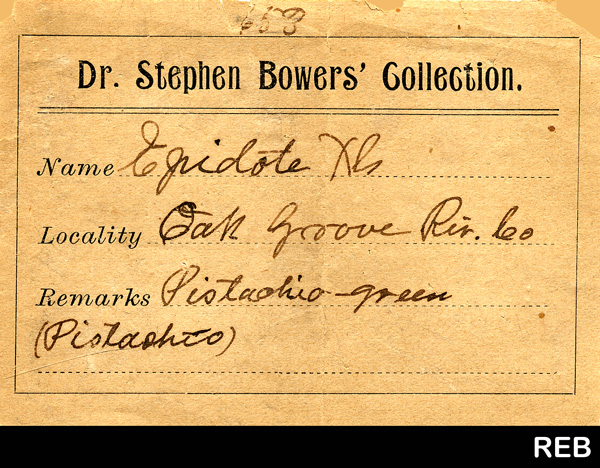 658
Dr. Stephen Bowers' Collection.
Name Epidote Xls
Locality Oak Groove Riv. Co
Remarks Pistachio-green
(Pistashio)
REB